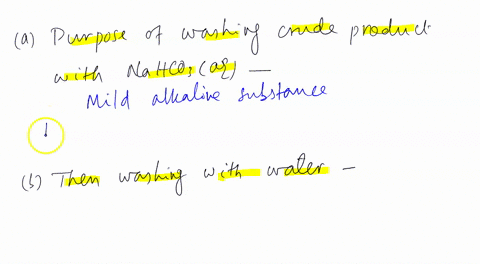 (a) Purpose of washing crude product
with NaHCO3 (aq) —
Mild alkaline substance
(b) Then washing with water —